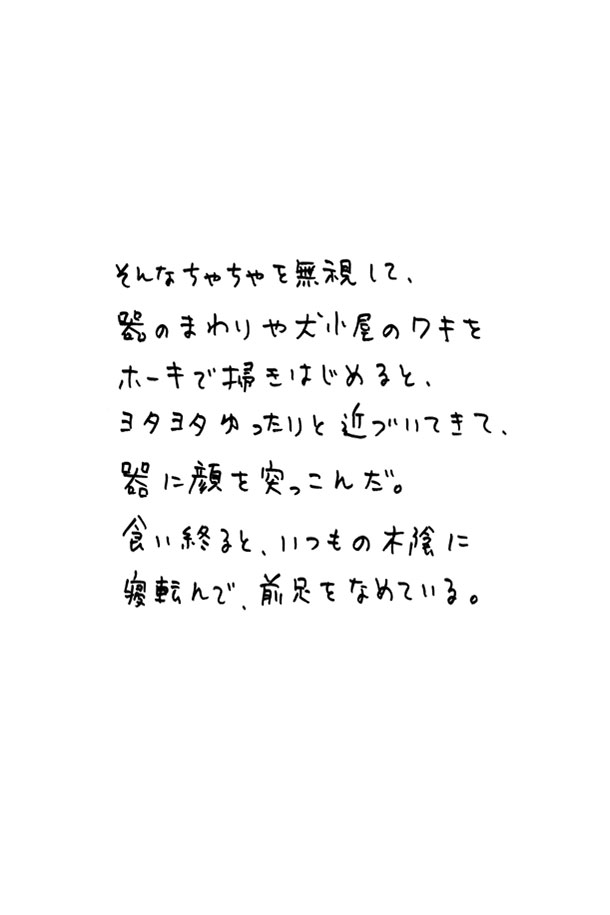 そんなちゃちゃを無視して、
器のまわりや犬小屋のワキを
ホーキで掃きはじめると、
ヨタヨタゆったりと近づいてきて、
器に顔を突っこんだ。
食い終ると、いつもの木陰に
寝転んで、前足をなめている。